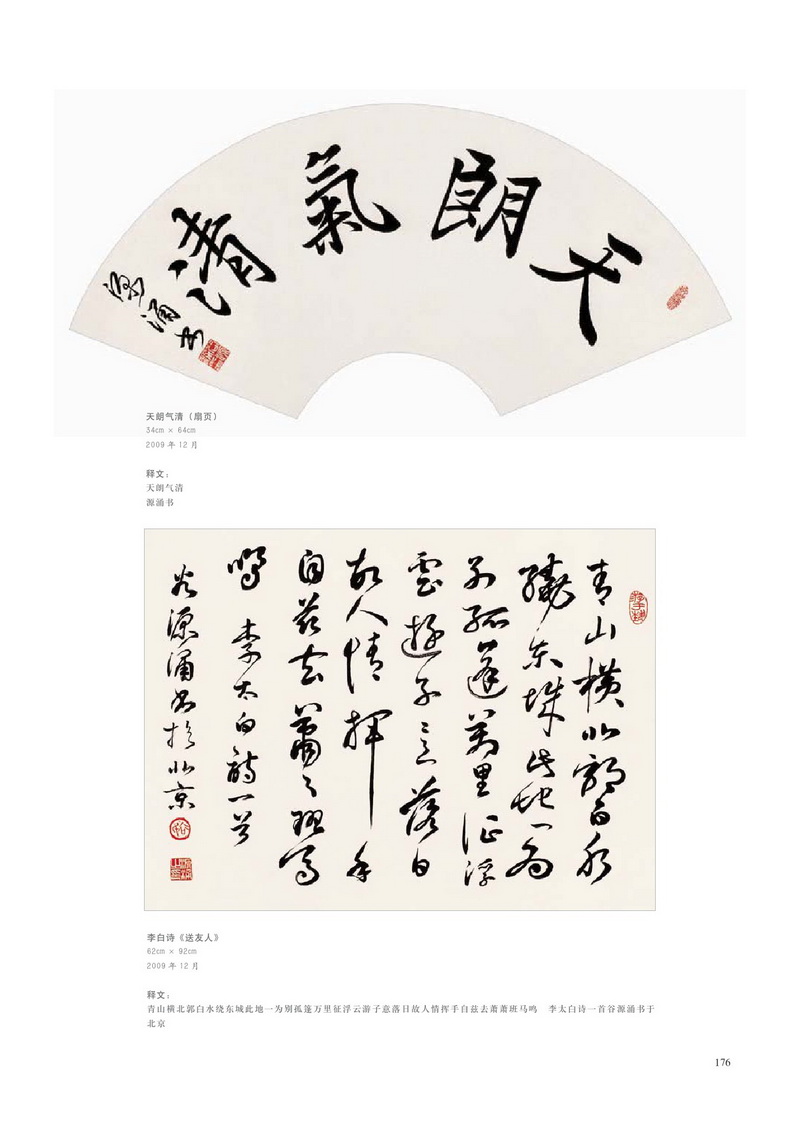 天朗氣清
源涌书
天朗气清（扇页）
34cm × 64cm
2009 年 12 月
释文：
天朗气清
源涌书
青山橫北郭白水
繞东城此地一为
别孤蓬萬里征浮
雲遊子意落日
故人情揮手
自兹去蕭々班马
鸣 李太白詩一首
谷源涌书於北京
李白诗《送友人》
62cm × 92cm
2009 年 12 月
释文：
青山横北郭白水绕东城此地一为别孤篷万里征浮云游子意落日故人情挥手自兹去萧萧班马鸣　李太白诗一首谷源涌书于
北京
176